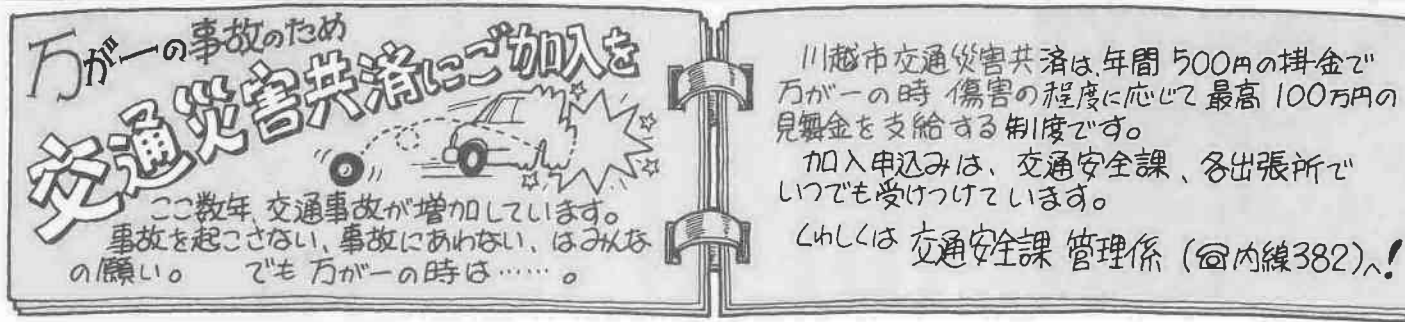 万が一の事故のため
交通災害共済にご加入を
ここ数年、交通事故が増加しています。
事故を起こさない、事故にあわない、はみんな
の願い。 でも 万が一の時は……。
川越市交通災害共済は、年間 500円の掛金で
万が一の時 傷害の程度に応じて 最高 100万円の
見舞金を支給する制度です。
加入申込みは、交通安全課、各出張所で
いつでも受けつけています。
くわしくは 交通安全課 管理係 (☎内線382)へ!